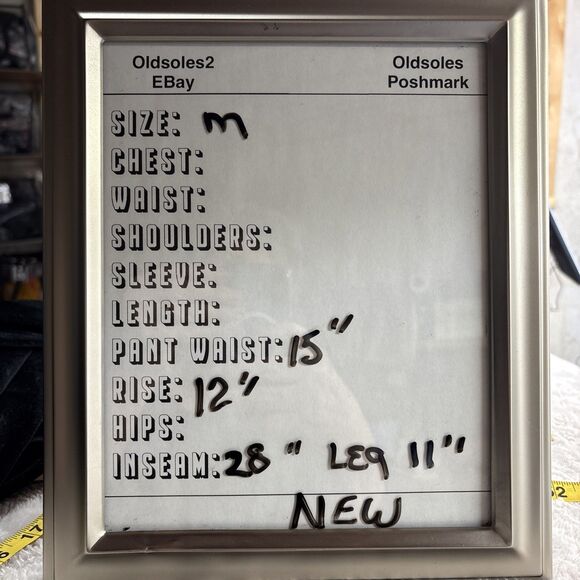 Oldsoles2 Oldsoles
EBay Poshmark
SIZE: m
CHEST:
WAIST:
SHOULDERS:
SLEEVE:
LENGTH:
PANT WAIST: 15"
RISE: 12"
HIPS:
INSEAM: 28" LEg 11"
NEW
17
2